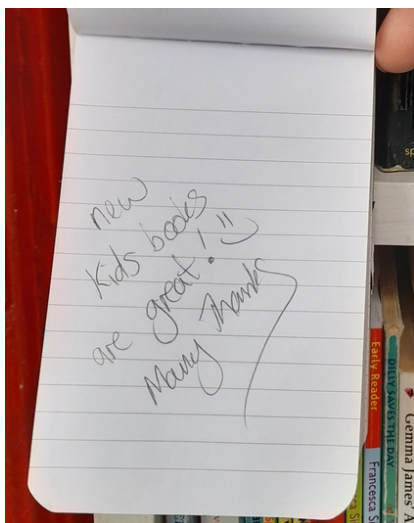 new
Kids books
are great! :)
Many Thanks
sp
Early Reader
Francesca S
DILLY SAVES THE DAY
Gemma James A